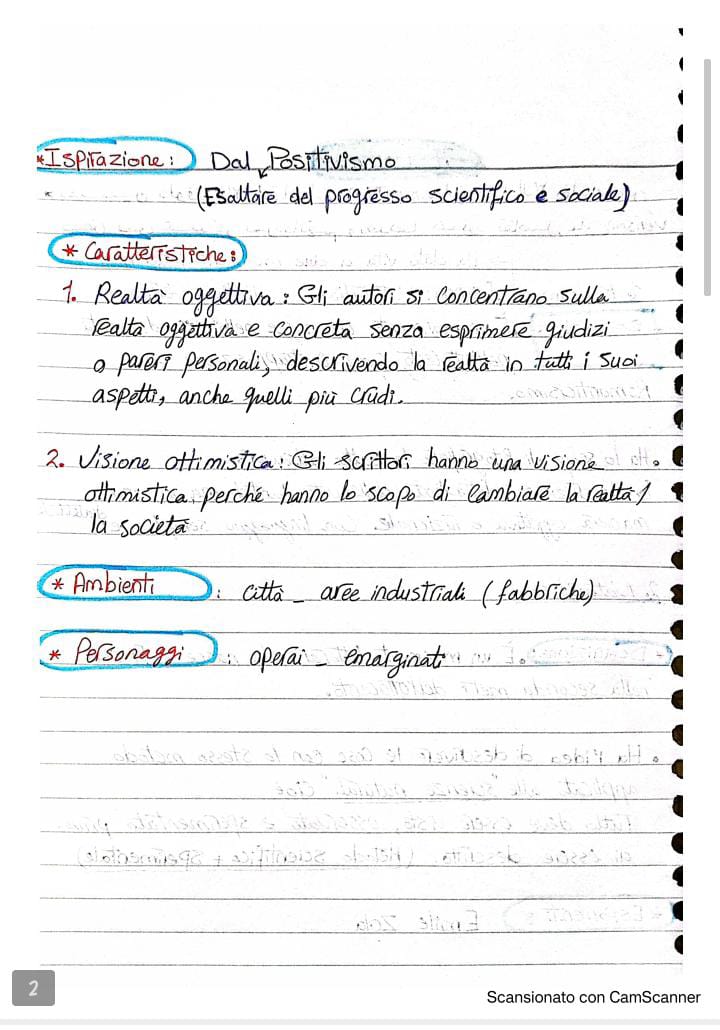 * Ispirazione: Dal Positivismo
(Esaltare del progresso scientifico e sociale)
* Caratteristiche:
1. Realtà oggettiva: Gli autori si concentrano sulla
realtà oggettiva e concreta senza esprimere giudizi
o pareri personali, descrivendo la realtà in tutti i suoi
aspetti, anche quelli più crudi.
2. Visione ottimistica: Gli scrittori hanno una visione
ottimistica perché hanno lo scopo di cambiare la realtà /
la società
* Ambienti : città - aree industriali (fabbriche)
* Personaggi : operai - emarginati
2
Scansionato con CamScanner